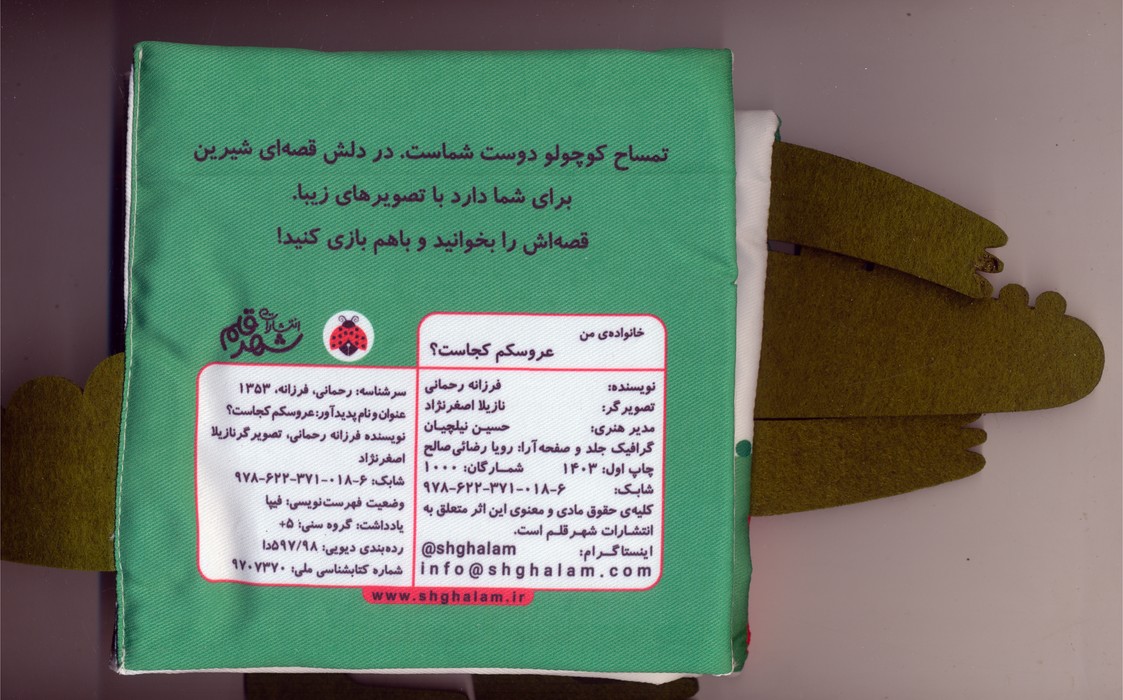 تمساح کوچولو دوست شماست. در دلش قصه‌ای شیرین
برای شما دارد با تصویرهای زیبا.
قصه‌اش را بخوانید و باهم بازی کنید!
انتشارات
شهر قلم
خانواده‌ی من
عروسکم کجاست؟
نویسنده: فرزانه رحمانی
تصویرگر: نازیلا اصغرنژاد
مدیر هنری: حسین نیلچیان
گرافیک جلد و صفحه‌آرا: رویا رضائی‌صالح
چاپ اول: ۱۴۰۳ شمـارگان: ۱۰۰۰
شابک: ۹۷۸-۶۲۲-۳۷۱-۰۱۸-۶
کلیه‌ی حقوق مادی و معنوی این اثر متعلق به
انتشارات شهرقلم است.
اینستاگرام: @shghalam
info@shghalam.com
سرشناسه: رحمانی، فرزانه، ۱۳۵۳
عنوان و نام پدیدآور: عروسکم کجاست؟
نویسنده فرزانه رحمانی، تصویرگر نازیلا
اصغرنژاد
شابک: ۶-۰۱۸-۳۷۱-۶۲۲-۹۷۸
وضعیت فهرست‌نویسی: فیپا
یادداشت: گروه سنی: ۵+
رده‌بندی دیویی: ۵۹۷/۹۸دا
شماره کتابشناسی ملی: ۹۷۰۷۳۷۰
www.shghalam.ir